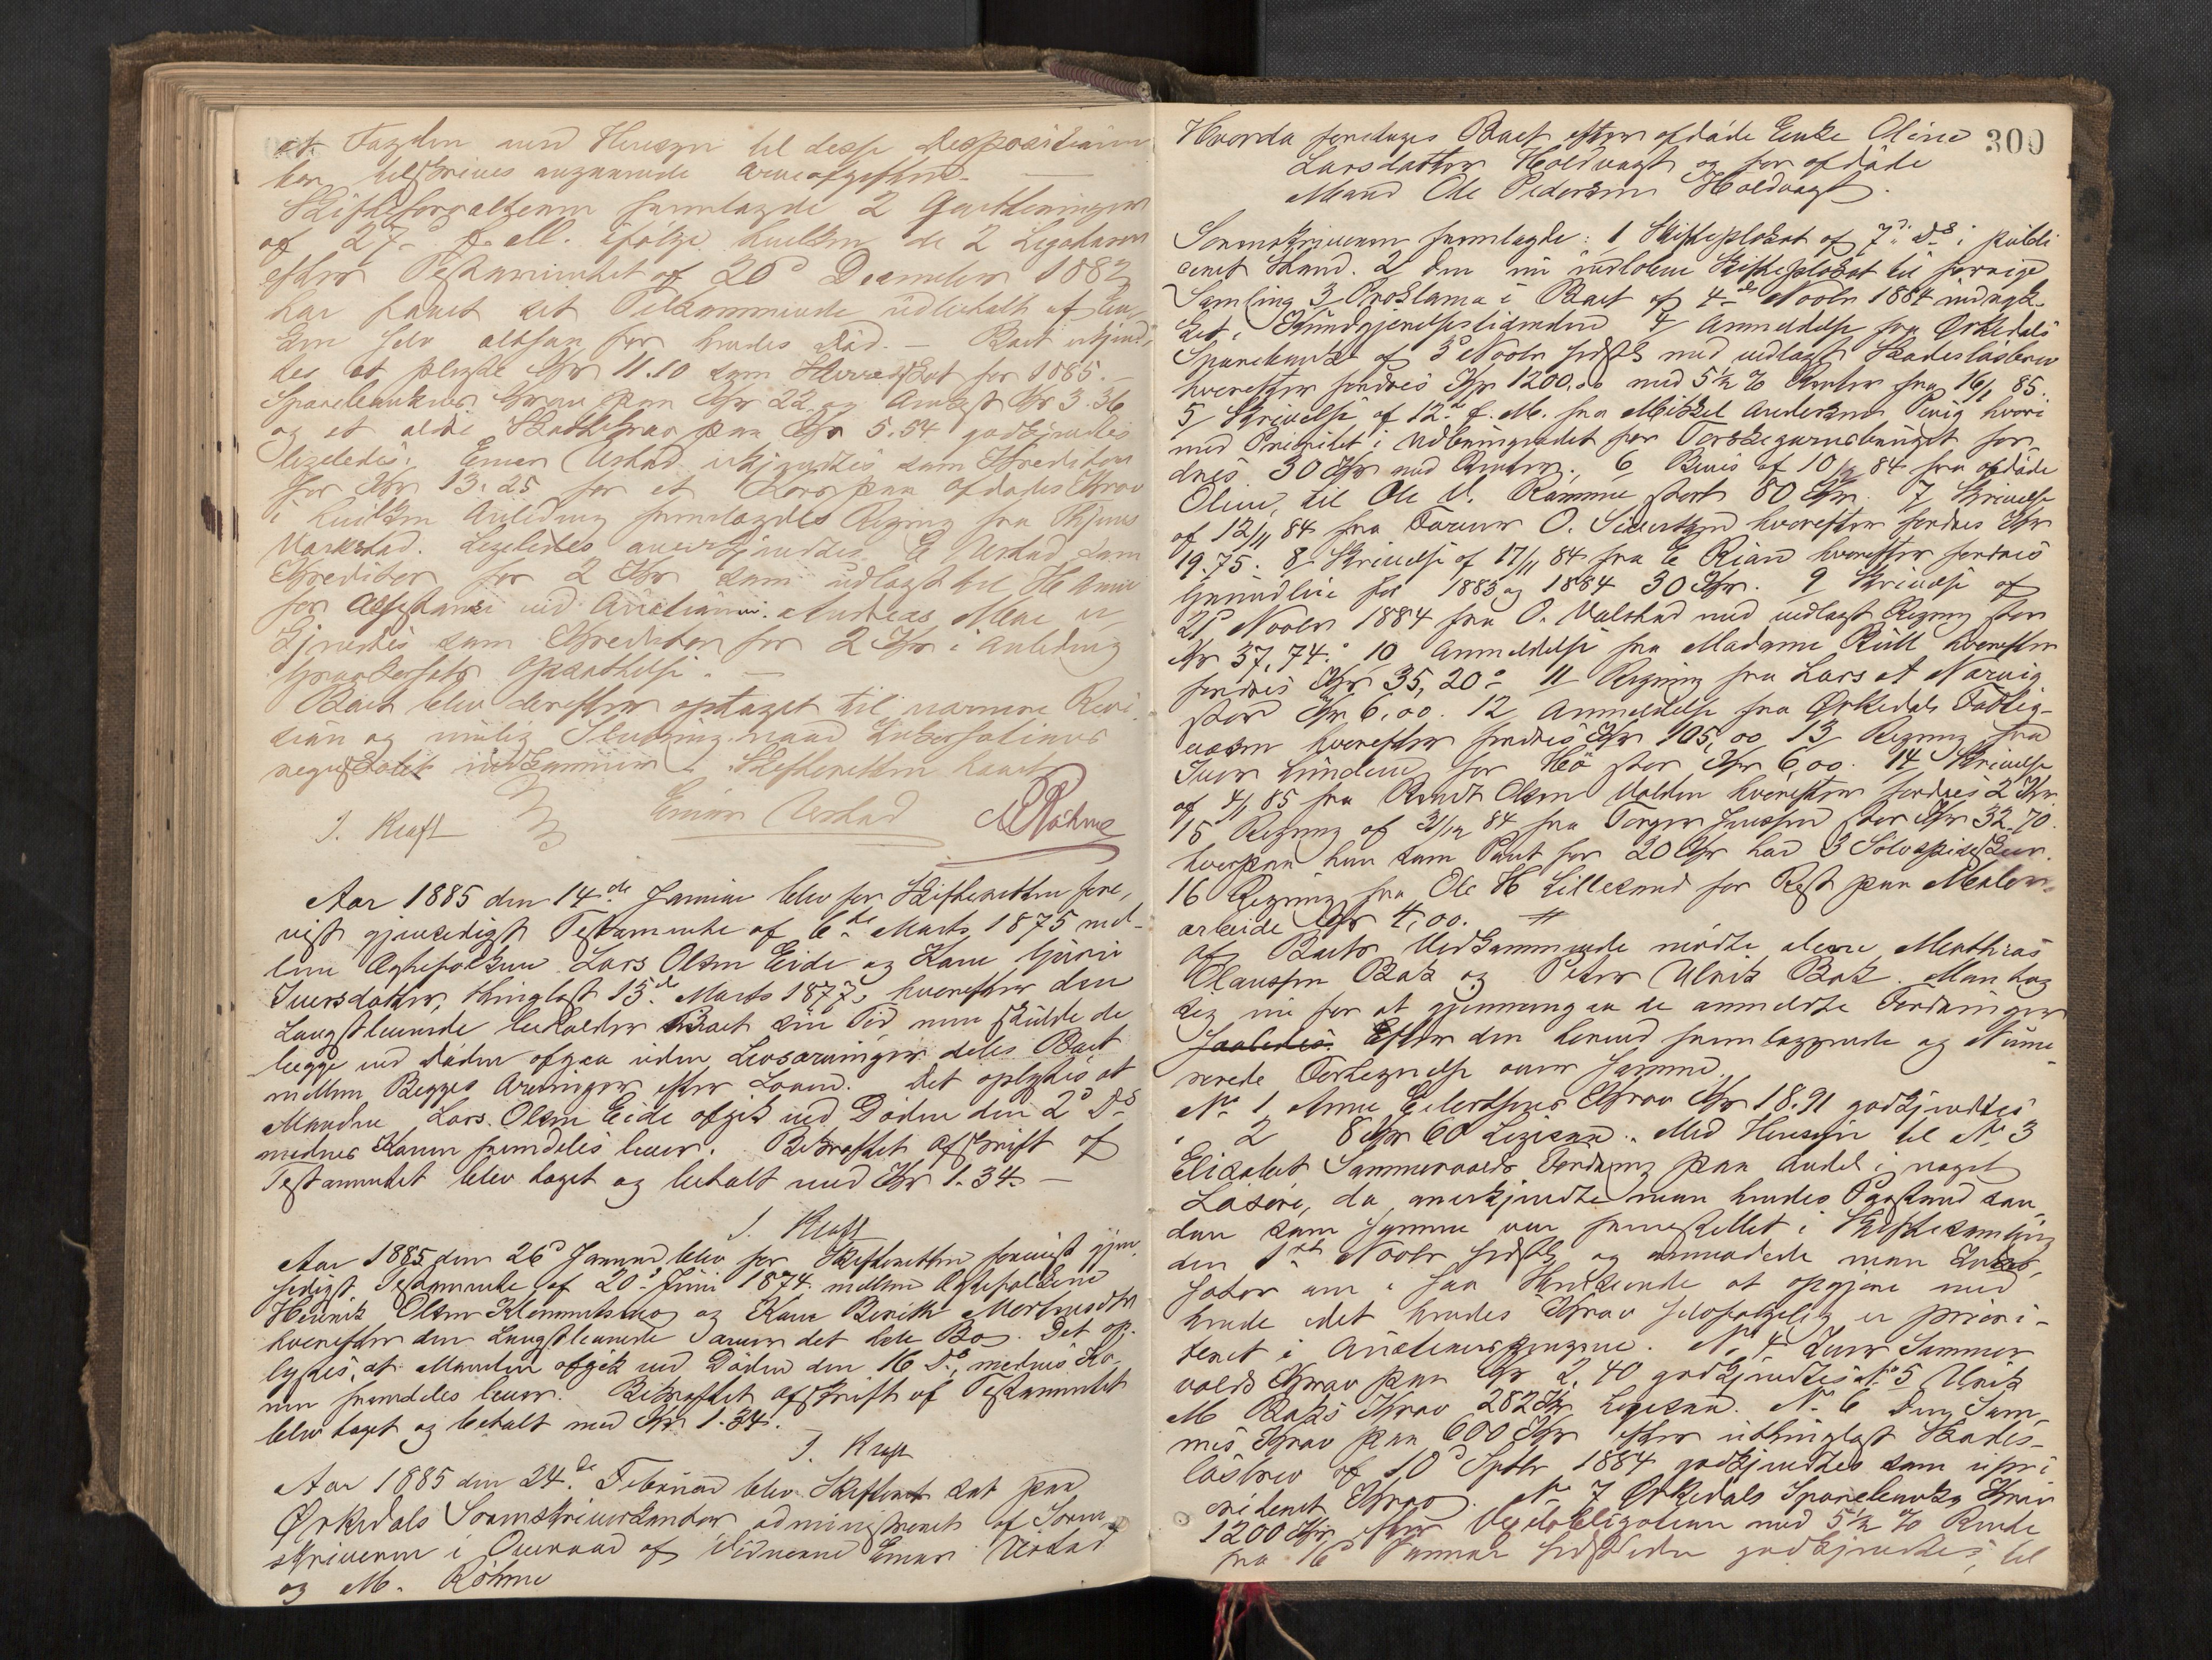 at Fazden med Hensyn til desse Dispositioner
bør tilskrives angaaende Arveafgiften. —
Skifteforvalteren fremlagde 2 Qvitteringer
af 27de f. M. ifølge hvilken de 2 Legatarer
efter Testamentet af 20de December 1882
har faaet sit Tilkommende udbetalt af En-
ken selv altsaa før hendes Død. — Boet erkjend-
tes at pligte Kr 11.10 som Herredskat for 1885.
Sparebankens Krav paa Kr 22 og Amtsskat Kr 3.36
og et ældre Skattekrav paa Kr 5.54 godkjendtes
ligeledes. Einar Urstad erkjendtes som Kreditor
for Kr 13.25 for et Kors paa afdødes Grav
i hvilken Anledning fremlagdes Regning fra
Varkstad. Ligeledes anerkjendtes E Urstad som
Kreditor for 2 Kr som udlagt til
for Assistance ved Auctionen. Andreas Moe er-
kjendtes som Kreditor for 2 Kr i Anledning
Gravkorsets Opsættelse. —
Boet blev derefter optaget til nærmere Revi-
sion og mulig Slutning naar Inkassationens
resultat indkommer. Skifteretten hævet
J. Kraft Einar Urstad M Røhme
Aar 1885 den 14de Januar blev for Skifteretten fore-
vist gjensidigt Testamente af 6te Marts 1875 mel-
lem Ægtefolkene Lars Olsen Eide og Kone Guri
Iversdatter, thinglæst 15de Marts 1877, hvorefter den
Længstlevende beholder Boet sin Tid, men skulde de
begge ved Døden afgaa uden Livsarvinger deles Boet
mellem Begges Arvinger efter Loven. Det oplystes at
Manden Lars Olsen Eide afgik ved Døden den 2den Ds
medens Konen fremdeles lever. Bekræftet Afskrift af
Testamentet blev taget og betalt med Kr 1.34. —
J. Kraft
Aar 1885 den 26de Januar blev for Skifteretten forevist gjen-
sidigt Testamente af 20de Juni 1874 mellem Ægtefolkene
Henrik Olsen Klemmetsmo og Kone Berith Mortensdtr
hvorefter den Længstlevende arver det hele Bo. Det op-
lystes, at Manden afgik ved Døden den 16 Ds, medens Ko-
nen fremdeles lever. Bekræftet Afskrift af Testamentet
blev taget og betalt med Kr 1.34.
J. Kraft
Aar 1885 den 24de Februar blev Skifteret sat paa
Ørkedals Sorenskriverkontor administreret af Soren-
skriveren i Overvær af Vidnerne Einar Urstad
og M. Røhme
300
Hvorda foretages Boet efter afdøde Enke Oline
Larsdatter Holdvagt og før afdøde
Mand Ole Pedersen Holdvagt.
Sorenskriveren fremlagde: 1 Skifteplakat af 7de Ds i publi-
ceret Stand. 2 den nu indlobne Skifteplakat til forrige
Samling 3 Proklama i Boet af 4de Novbr 1884 indryk-
ket i Kundgjørelsestidenden 4 Anmeldelse fra Ørkedals
Sparebank af 3de Novbr sidstl med vedlagt Skadesløsbrev
hvorefter fordres Kr 1200.00 med 5½ % Renter fra 16/1 85.
5 Skrivelse af 12te f. M. fra Mikkel Andersen Pevig hvori
med Prioritet i Udbringendet for Torskegarnsbruget for-
dres 30 Kr med Renter. 6 Bevis af 10/ 84 fra afdøde
Oline, til Ole A. Ramme stort 80 Kr. 7 Skrivelse
af 12/11 84 fra Farver O. Sivertsen hvorefter fordres Kr
19.75. 8 Skrivelse af 17/11 84 fra E Rian hvorefter fordres
Grundleie for 1883 og 1884 30 Kr. 9 Skrivelse af
21de Novbr 1884 fra O. Valstad med vedlagt Regning stor
Kr 37,74. 10 Anmeldelse fra Madame Rull hvorefter
fordres Kr 35,20. 11 Regning fra Lars A Narvig
stor Kr 6,00. 12 Anmeldelse fra Ørkedals Fattig-
væsen hvorefter fordres Kr 105,00 13 Regning fra
Iver Linden for Hø stor Kr 6,00. 14 Skrivelse
af 4/1 85 fra Arndt Olsen Volden hvorefter fordres 2 Kr
15 Regning af 31/12 84 fra Torger Jensen stor Kr 32.70.
hvorpaa han som Pant for 20 Kr had 3 Sølvspiseskeer.
16 Regning fra Ole H Lillesund for Rest paa Maler-
arbeide Kr 4,00. #
Af Boets Vedkommende mødte alene Mathias
Olaussen Bak og Peter Ulrik Bak. Man tog
sig nu for at gjennemgaa de anmeldte Fordringer
saaledes. Efter den herved fremlagte og Nume-
rerede Fortegnelse over samme.
No 1 Anne Eilertsens Krav Kr 18.91 godkjendtes
" 2 8 Kr 60 Ligesaa. Med Hensyn til No 3
Elisabet Sommervolds Fordring paa Andel i noget
Løsøre, da anerkjendte man hendes Paastand saa-
dan som samme var fremstillet i Skiftesamling
den 1ste Novbr sidstl og anmodede man Inkas-
sator om i saa Henseende at opgjøre med
hende idet hendes Krav selvfølgelig er priori-
teret i Auctionspengene. No 4 Iver Sommer
volds Krav paa Kr 2,40 godkjendtes No 5 Ulrik
M Baks Krav 282 Kr Ligesaa. No 6 Sam-
mes Krav paa 600 Kr efter uthinglæst Skades-
løsbrev af 10de Septbr 1884 godkjendtes som upri-
oriteret Krav. No 7 Ørkedals Sparebanks Krav
1200 Kr efter Vexelobligation med 5½ % Rente
fra 16de Januar sidstleden godkjendtes, til